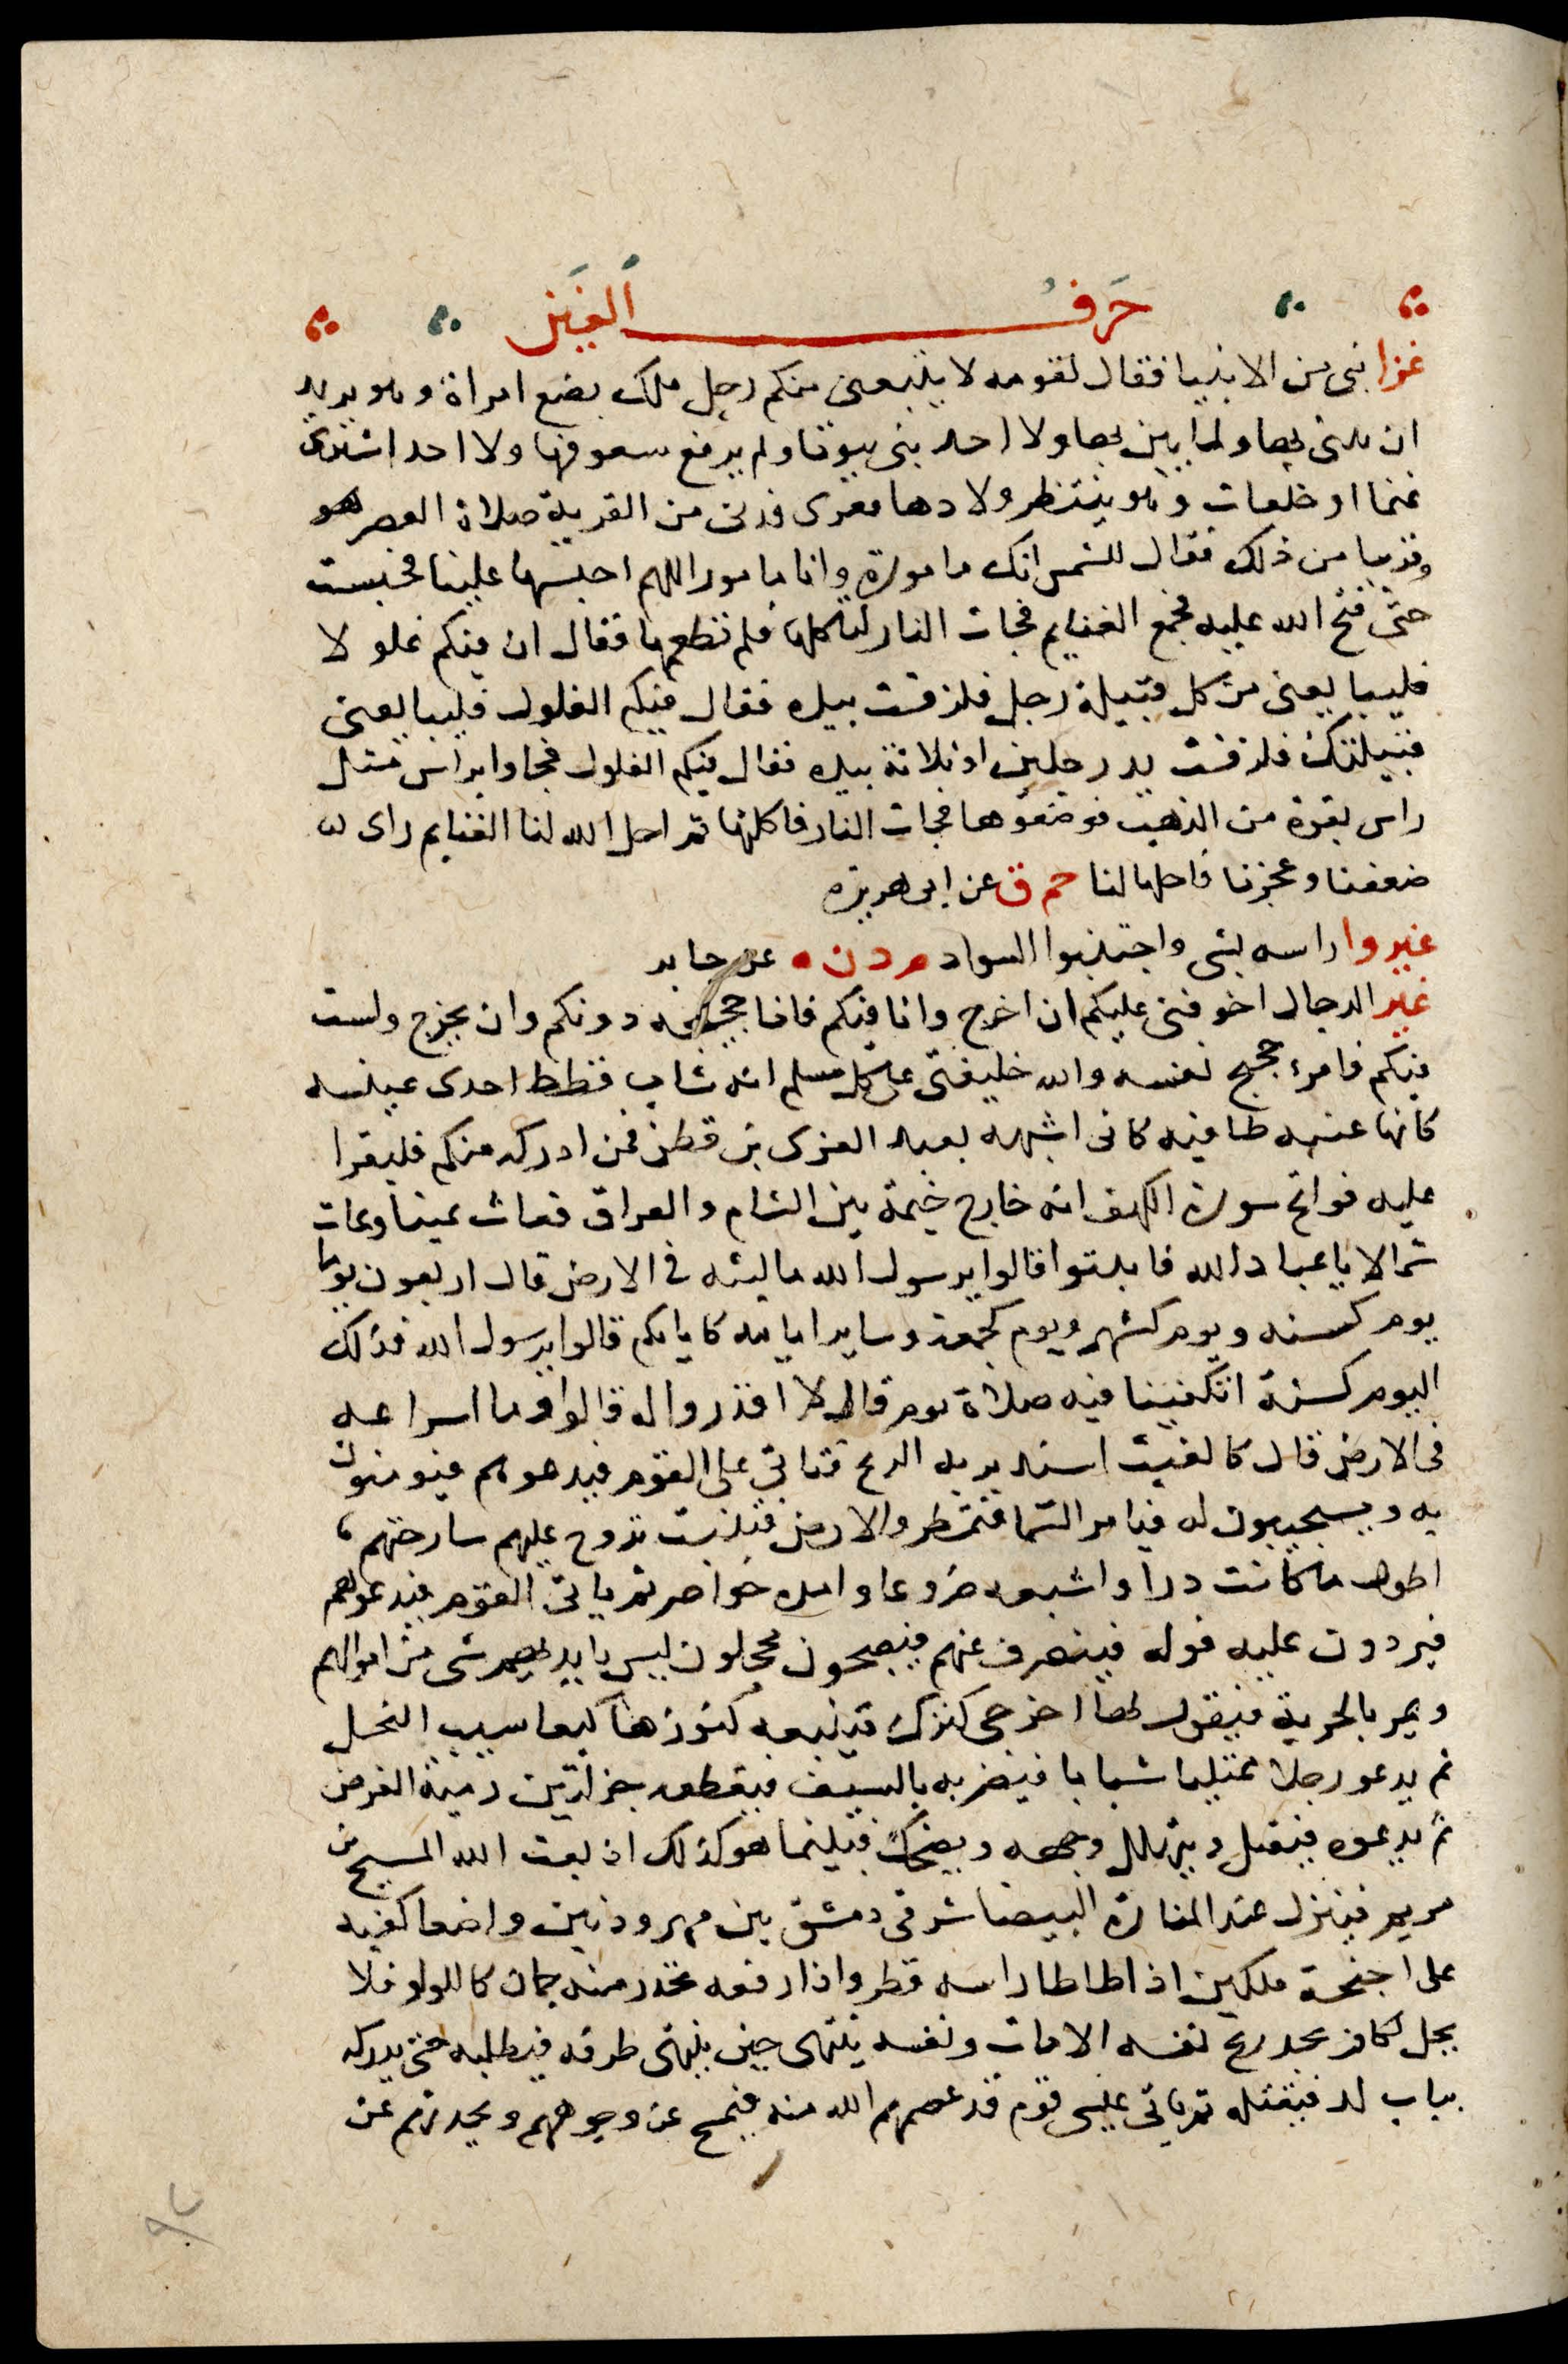 حَرفُ الغَيَن
غزا نبى من الانبيا فقال لقومه لا يتبعنى منكم رجل ملك بضع امراة وهو يريد
ان يبنى بها ولما يبن بها ولا احد بنى بيوتا ولم يرفع سقوفها ولا احد اشترى
غنما او خلفات وهو ينتظر ولادها فغزى فدنى من القرية صلاة العصر
وقريبا من ذلك فقال للشمس انك مامورة وانا مامور اللهم احبسها علينا فحبست
حتى فتح الله عليه فجمع الغنايم فجات النار لتاكلها فلم تطعمها فقال ان فيكم غلولا
فليبايعنى من كل قبيلة رجل فلزقت بيده فقال فيكم الغلول فليبايعنى
قبيلتك فلزقت يد رجلين او ثلاثة بيده فقال فيكم الغلول فجاوا براس مثل
راس بقرة من الذهب فوضعوها فجات النار فاكلتها ثم احل الله لنا الغنايم راى
ضعفنا وعجزنا فاحلها لنا حم ق عن ابى هريرة
غيروا راسه بشى واجتنبوا السواد م د ن ه عن جابر
غير الدجال اخوفنى عليكم ان اخرج وانا فيكم فانا حجيجه دونكم وان يخرج ولست
فيكم فامرء حجيج نفسه والله خليفتى على كل مسلم انه شاب قطط احدى عينيه
كانها عنبه طافيه كانى اشبهه بعبد العزى بن قطن فمن ادركه منكم فليقرا
عليه فواتح سورة الكهف انه خارج خيمة بين الشام والعراق فعاث يمينا وعاث
شمالا ياعباد الله فاثبتوا قالوا يرسول الله ما لبثه فى الارض قال اربعون يوما
يوم كسنه ويوم كشهر ويوم كجمعة وساير ايامه كايامكم قالوا يرسول الله فذلك
اليوم كسنة اتكفينا فيه صلاة يوم قال لا اقدروا له قالوا وما اسراعه
فى الارض قال كالغيث استدبر به الريح فتاتى على القوم فيدعوهم فيومنون
به ويستجيبون له فيامر السما فتمطر والارض فتنبت تروح عليهم سارحتهم
اطول ما كانت درا واشبعه ضروعا وامده خواصر ثم ياتى القوم فيدعوهم
فيردون عليه قوله فينصرف عنهم فيصبحون محلون ليس بايديهم شى من اموالهم
ويمر بالخربة فيقول لها اخرجى كنزك فيتبعه كنوزها كيعاسيب النحل
ثم يدعو رجلا ممتليا شبابا فيضربه بالسيف فيقطعه جزلتين رمية الغرض
ثم يدعوه فيقبل ويتهلل وجهه ويضحك فبينما هو كذلك اذ بعث الله المسيح بن
مريم فينزل عند المنارة البيضا شرقى دمشق بين مهرودتين واضعا كفيه
على اجنحة ملكين اذا طاطا راسه قطر واذا رفعه تحدر منه جمان كاللولو فلا
يحل لكافر يجد ريح نفسه الا مات ونفسه ينتهى حين ينتهى طرفه فيطلبه حتى يدركه
بباب لد فيقتله ثم ياتى عيسى قوم قد عصمهم الله منه فيمسح عن وجوههم ويحدثهم عن